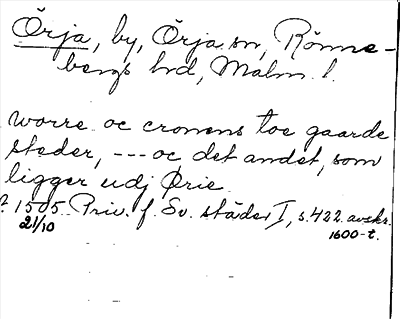 Örja, by, Örja sn, Rönne-
bergs hrd, Malm. l.
worre oc cronens toe gaarde
steder, --- oc det andet, som
ligger udj Ørie.
? 1505 Priv. f. Sv. städer I, s. 422. avskr.
21/10 1600-t.